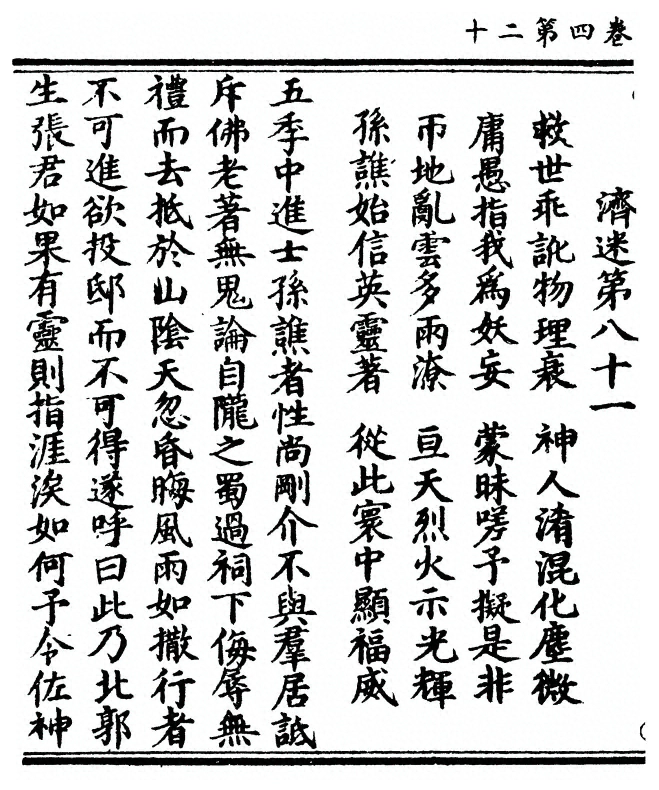 卷四第二十
濟迷第八十一
救世乖訛物理衰　神人淆混化塵微
庸愚指我為妖妄　蒙昧嘐予擬是非
帀地亂雲多雨潦　亘天烈火示光輝
孫譙始信英靈著　從此寰中顯福威
五季中進士孫譙者性尚剛介不與羣居詆
斥佛老著無鬼論自隴之蜀過祠下侮辱無
禮而去抵於山陰天忽昏晦風雨如撒行者
不可進欲投邸而不可得遂呼曰此乃北郭
生張君如果有靈則指涯涘如何予令佐神